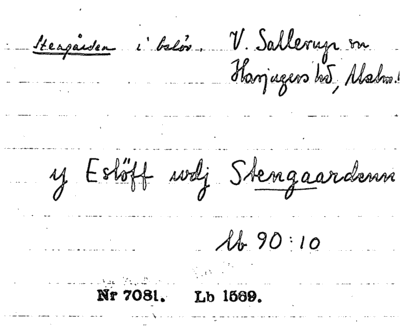 Stengården i Eslöv. V. Sallerup sn
Harjagers hd, Malm.
y Eslöff wdj Stengaardenn
Lb 90:10
Nr 7081. Lb 1569.